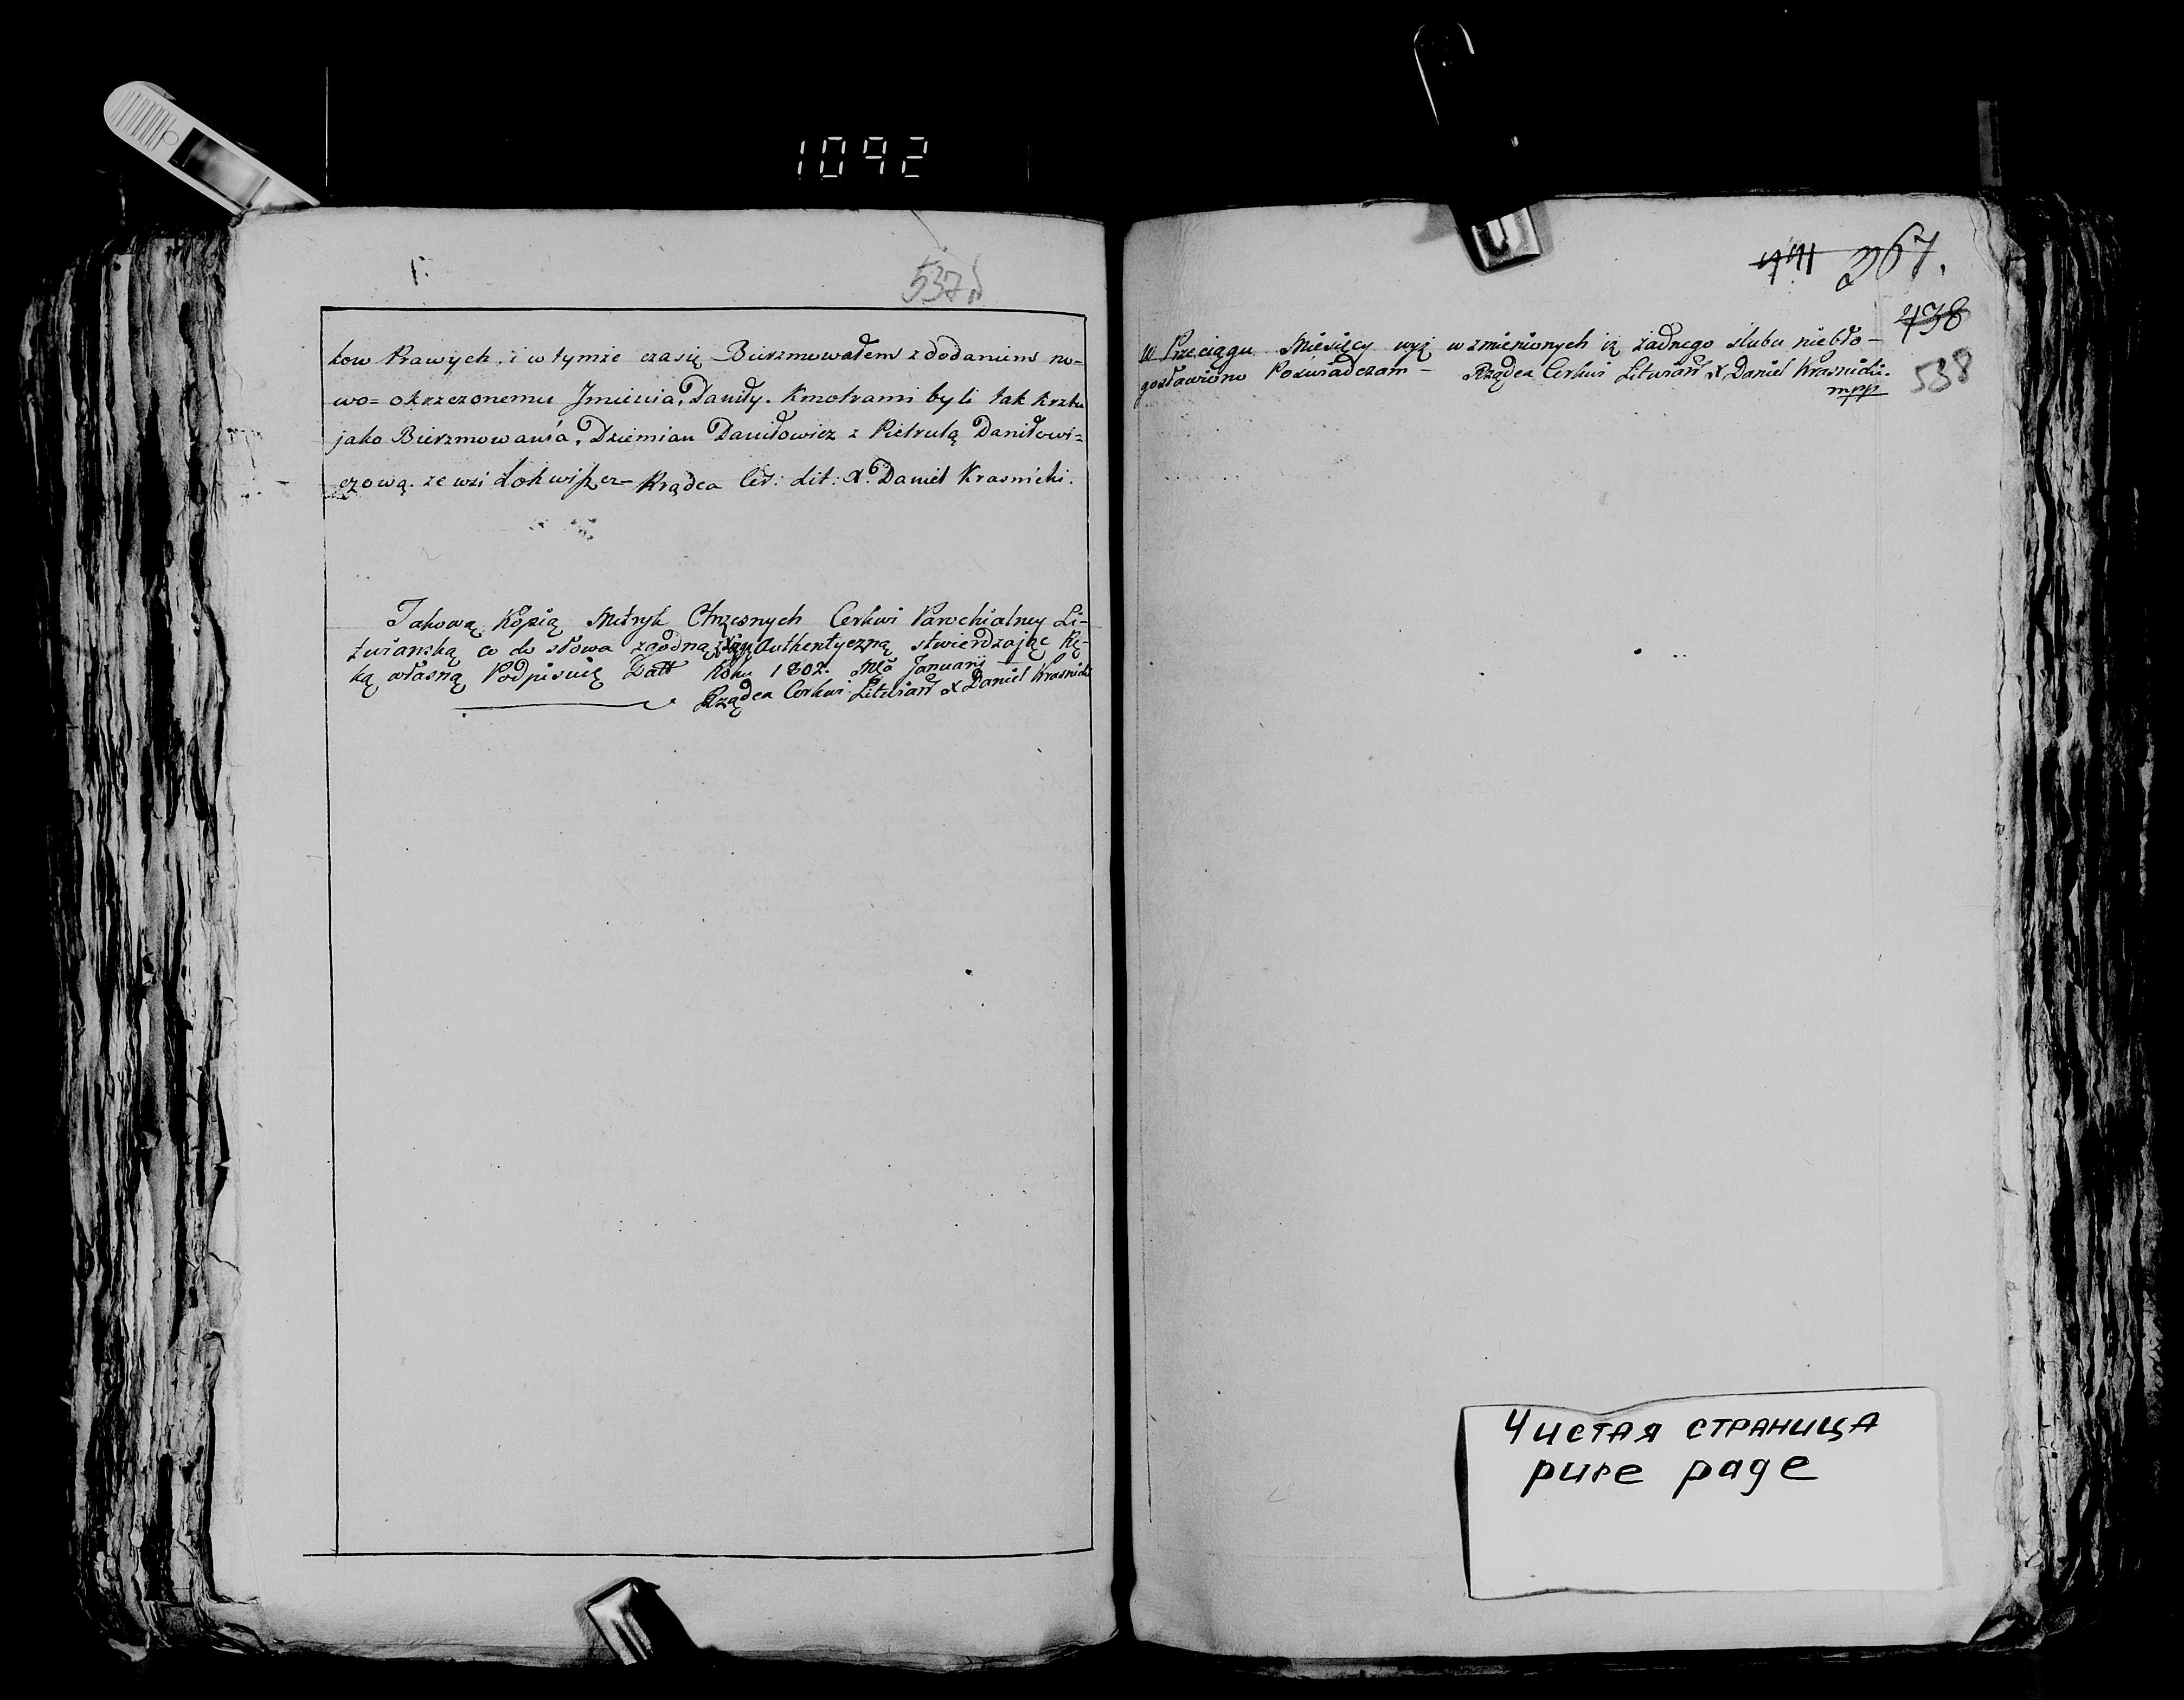 1092
537
kow Prawych, i w tymże czasię Bierzmowałem z dodaniem no-
wo= okrzczonemu Jmienia, Daniły. Kmotrami byli tak krztu
jako Bierzmowania, Dziemian Daniłowicz z Pietrulą Daniłowi=
czową. ze wsi Rządca Cer: Lit: X. Daniel Krasnicki.
Takową Kopią Metryk Chrzesnych Cerkwi Parochialney Li-
twianską co do słowa zgodną z Authentyczną stwierdzając Rę-
ką własną Podpisuię Datt Roku 1802. Januarii
Rządca Cerkwi Litwian X Daniel Krasnicki
267.
438
538
W Przeciągu Miesięcy wyż wzmienionych iż żadnego slubu niebło-
gosławiono Poswiadczam - Rządca Cerkwi Litwian X Daniel Krasnicki.
mpp
Чистая страница
pure page